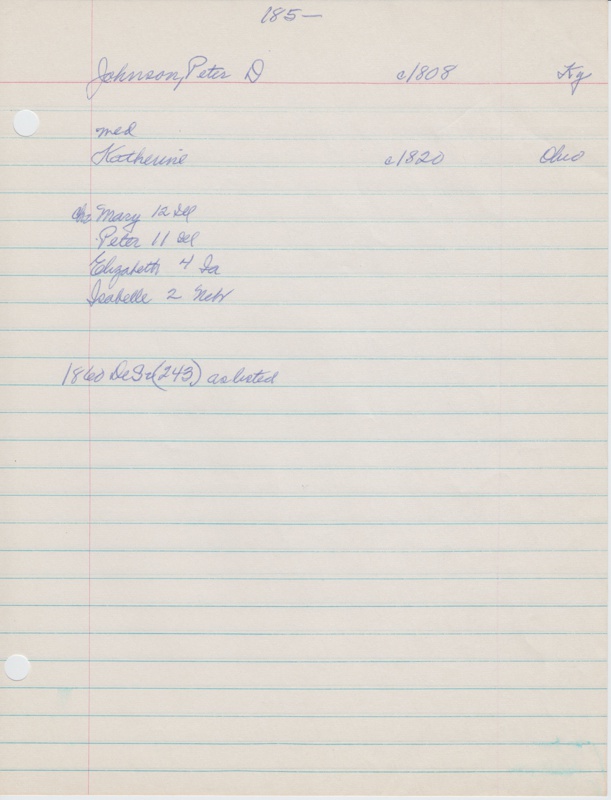 185—
Johnson, Peter D c1808 Ky
med
Katherine c1820 Ohio
ch: Mary 12 Ill
Peter 11 Ill
Elizabeth 4 Ia
Isabelle 2 Nebr
1860 (243) as listed